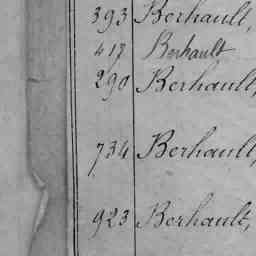 393 Berhault,
417 Berhault
290 Berhault,
734 Berhault,
923 Berhault,